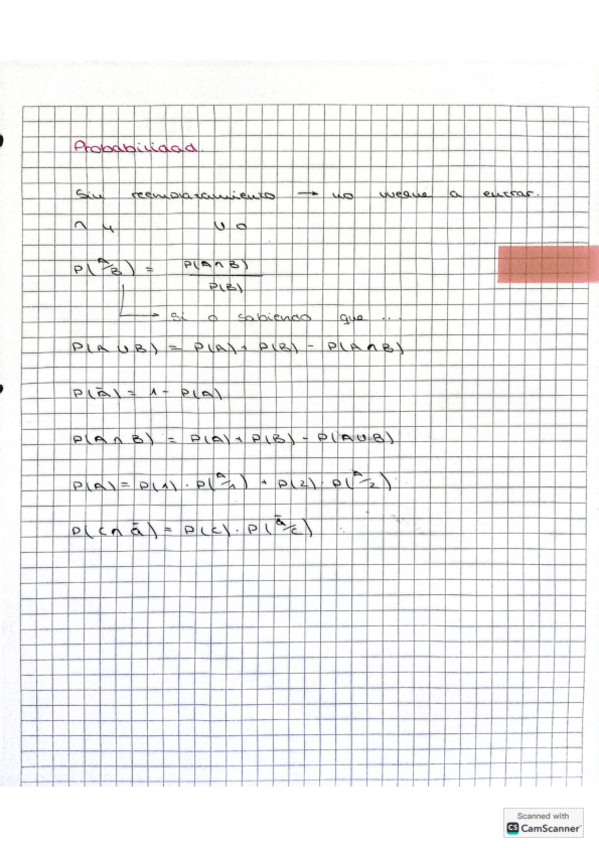 Probabilidad
Sin reemplazamiento → no vuelve a entrar.
∩ y ∪ o
P(A/B) = P(A∩B) / P(B)
si o sabiendo que ...
P(A∪B) = P(A) + P(B) - P(A∩B)
P(Ā) = 1 - P(A)
P(A∩B) = P(A) + P(B) - P(A∪B)
P(A) = P(1) · P(A/1) + P(2) · P(A/2)
P(C∩ā) = P(C) · P(ā/C)
Scanned with
CS CamScanner